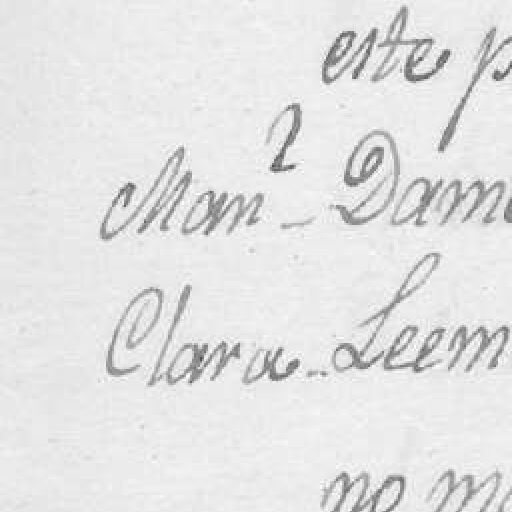 este p
Man² Dam
Clara Leem
no m